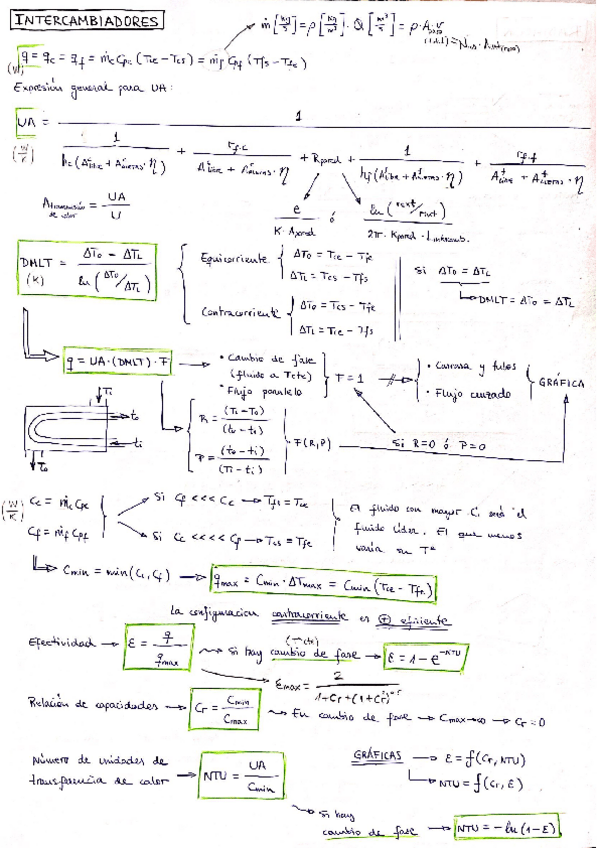 INTERCAMBIADORES
ṁ [kg/s] = ρ [kg/m³] · Q [m³/s] = ρ · A_paso · v
(total) = N_tubos · A_int(mono)
(W) q = q_c = q_f = ṁ_c Cp_c (T_ce − T_cs) = ṁ_f Cp_f (T_fs − T_fe)
Expresión general para UA:
UA = 1
(W/K) 1 / h_c (A^c_libre + A^c_aletas · η) + r_f.c / A^c_libre + A^c_aletas · η + R_pared + 1 / h_f (A^f_libre + A^f_aletas · η) + r_f.f / A^f_libre + A^f_aletas · η
A = UA / U
de calor
e / K · A_pared ó ln (r_ext / r_int) / 2π · K_pared · L_intercamb.
DMLT = ΔT_0 − ΔT_L / ln (ΔT_0 / ΔT_L)
(K)
Equicorriente ΔT_0 = T_ce − T_fe
ΔT_L = T_cs − T_fs
Contracorriente ΔT_0 = T_cs − T_fe
ΔT_L = T_ce − T_fs
Si ΔT_0 = ΔT_L
DMLT = ΔT_0 = ΔT_L
q = UA · (DMLT) · F
• Cambio de fase
(fluido a T cte)
• Flujo paralelo
F = 1
• Carcasa y tubos
• Flujo cruzado
GRÁFICA
Ti
to
ti
To
R = (Ti − To) / (to − ti)
P = (to − ti) / (Ti − ti)
F(R,P)
Si R=0 ó P=0
(W/K) C_c = ṁ_c Cp_c
C_f = ṁ_f Cp_f
Si C_f <<< C_c → T_fs = T_ce
Si C_c <<<< C_f → T_cs = T_fe
El fluido con mayor C_i será el
fluido líder. El que menos
varía su Tª
C_min = min(C_c, C_f) → q_max = C_min · ΔT_max = C_min (T_ce − T_fe)
La configuración contracorriente es ⊕ eficiente
Efectividad → ε = q / q_max
Si hay cambio de fase → ε = 1 − e^−NTU
(T cte)
ε_max = 2 / 1 + Cr + (1 + Cr²)^0'5
Relación de capacidades → Cr = C_min / C_max
En cambio de fase → C_max → ∞ → Cr = 0
Número de unidades de
transferencia de calor → NTU = UA / C_min
GRÁFICAS → ε = f(Cr, NTU)
NTU = f(Cr, ε)
Si hay
cambio de fase → NTU = −ln (1 − ε)